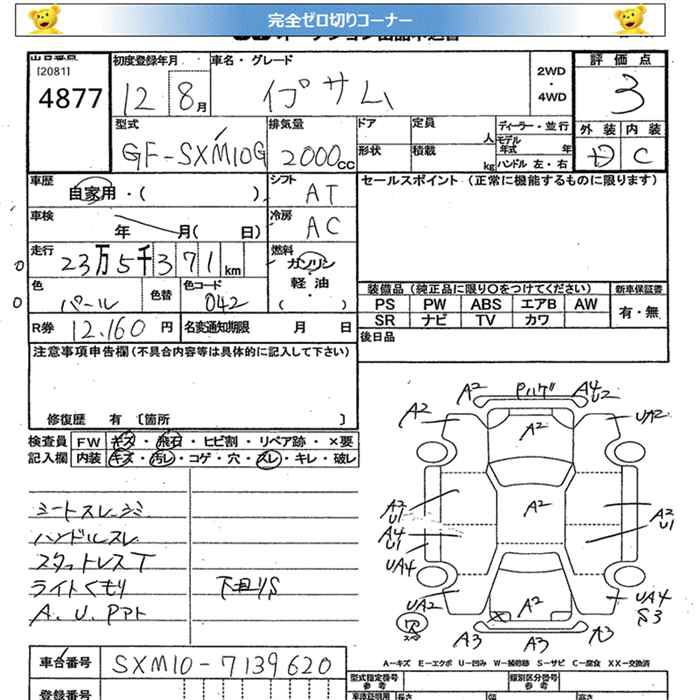 完全ゼロ切りコーナー
[2081]
4877
初度登録年月
12 8月
車名・グレード
イプサム
2WD
・
4WD
評価点
3
型式
GF-SXM10G
排気量
2000cc
ドア
定員
人
形状
積載
kg
ディーラー・並行
モデル
年式 年
ハンドル 左・右
外装 内装
D C
車歴
自家用・( )
シフト
AT
セールスポイント (正常に機能するものに限ります)
車検
年 月( 日)
冷房
AC
走行
23万5千371km
燃料
ガソリン
・
軽油
( )
色
パール
色替
色コード
042
装備品 (純正品に限り○をつけてください)
新車保証書
PS PW ABS エアB AW
有・無
SR ナビ TV カワ
R券 12,160 円
名変通知期限 月 日
後日品
注意事項申告欄(不具合内容等は具体的に記入して下さい)
修復歴 有 〔箇所 〕
検査員 FW キズ・飛石・ヒビ割・リペア跡・×要
記入欄 内装 キズ・汚レ・コゲ・穴・スレ・キレ・破レ
ハンドルスレ
スタットレスT
ライトくもり
下回りS
A2 A4 U2
A2 A2 UA2
A2 U1 A2 A2 U1
A4 U1
UA4
UA2 A2 UA4 S3
A3 A3 A3
車台番号 SXM10-7139620
A-キズ E-エクボ U-凹み W-補修跡 S-サビ C-腐食 XX-交換済
登録番号
型式指定番号
参考
類別区分番号
参考